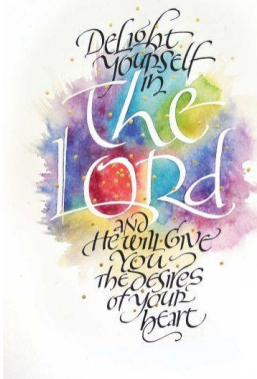 Delight
Yourself
in
The
LORD
and
He will Give
You
The desires
of Your
heart